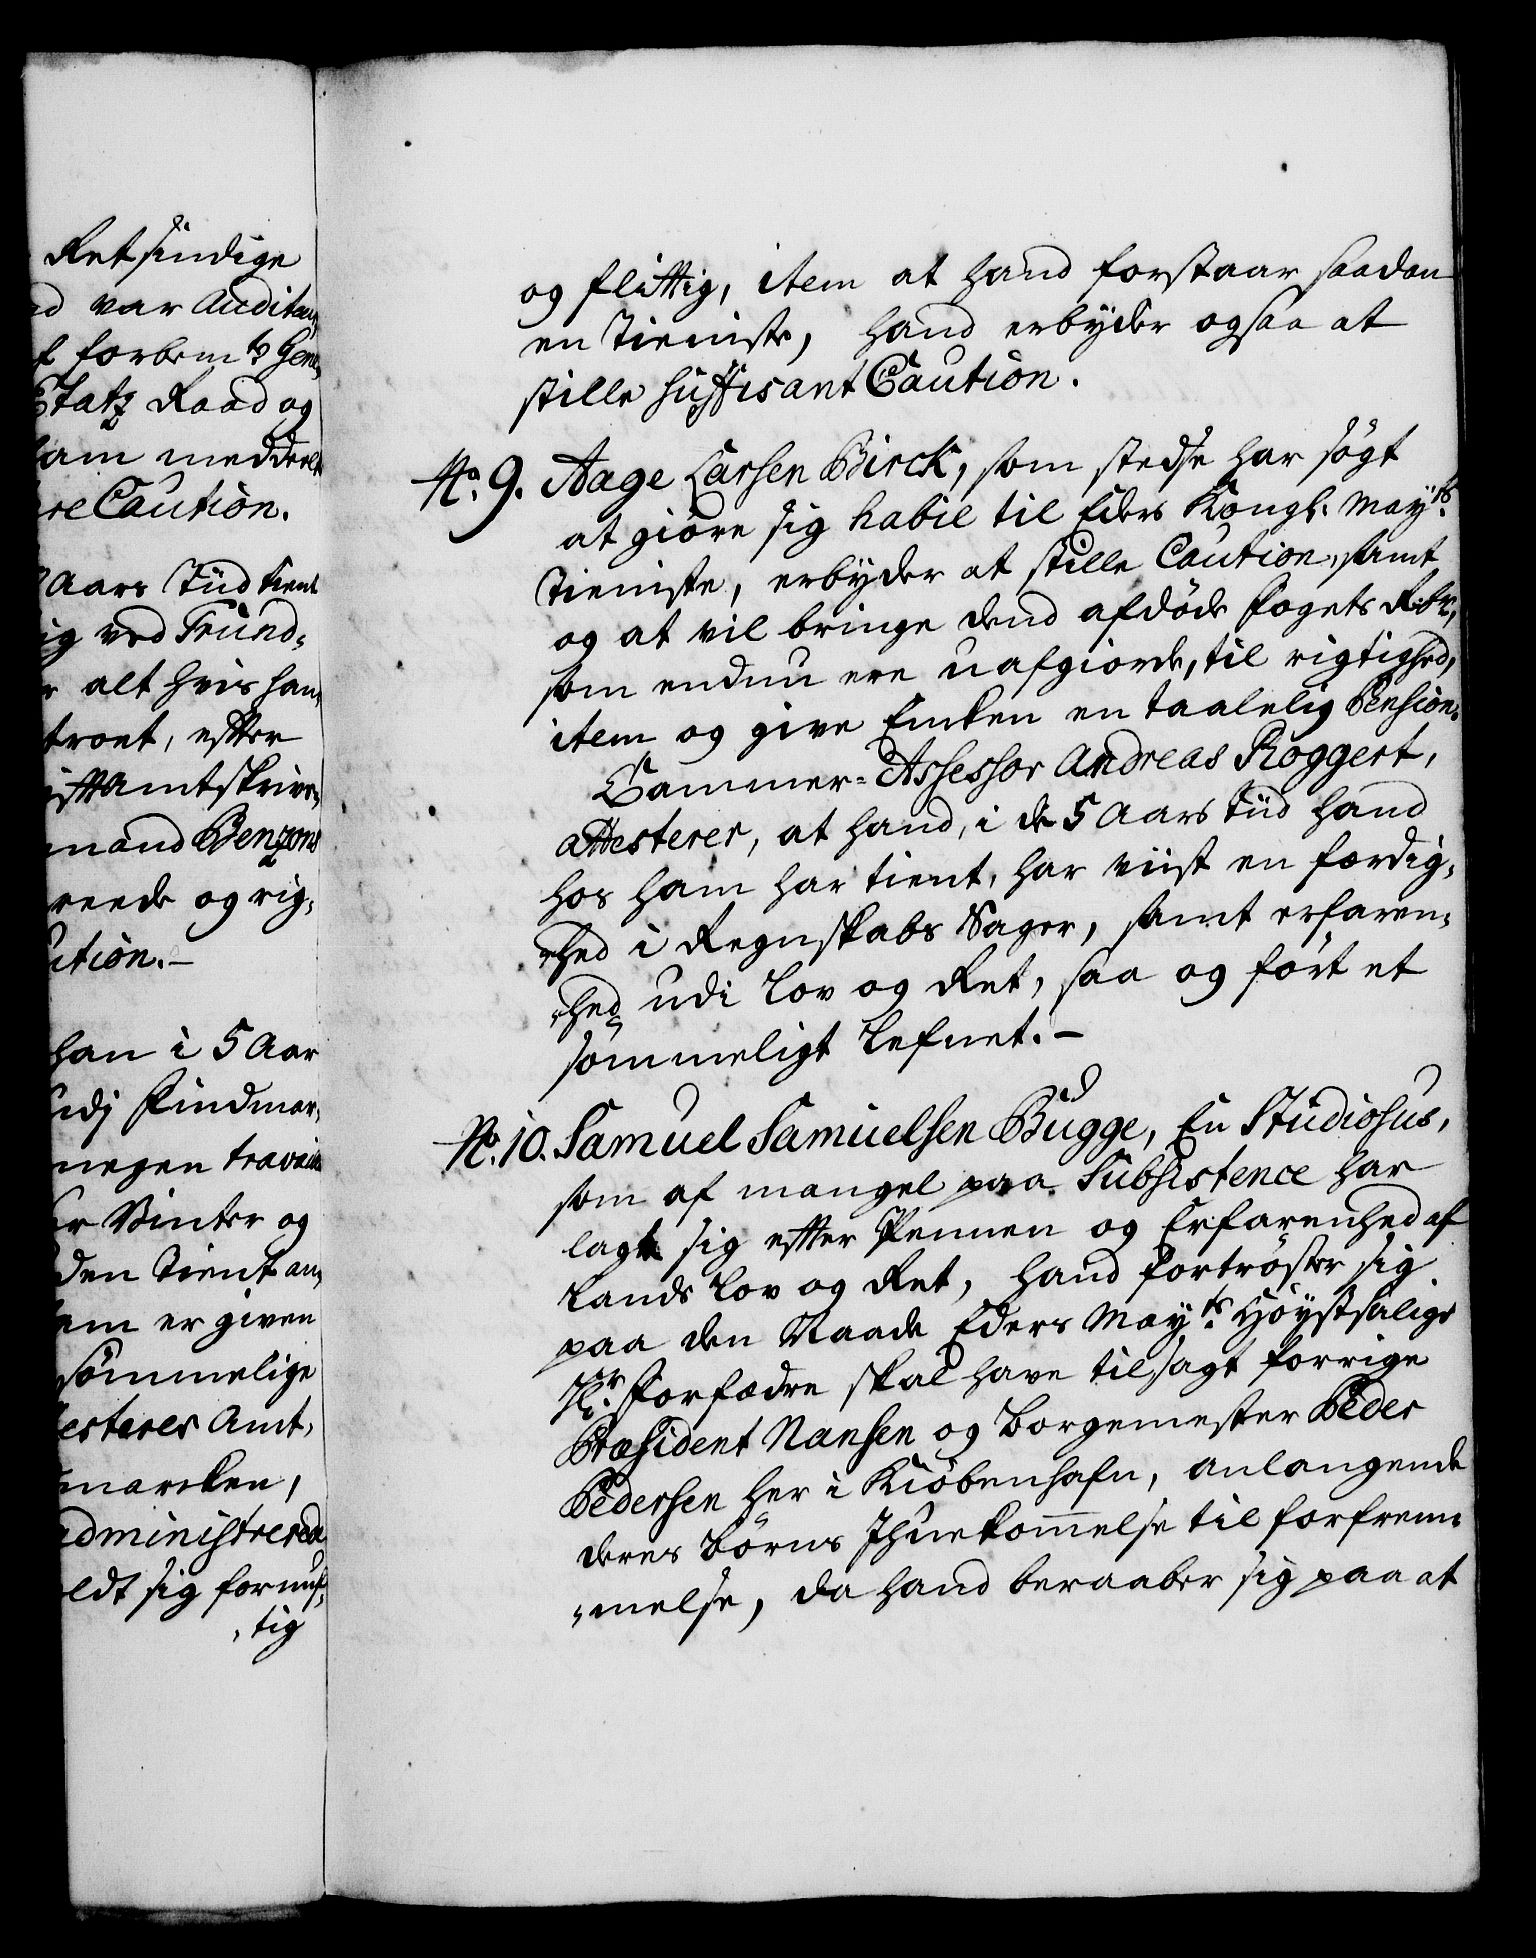 Retsindige
nd var Auditeu„
f forbem.te Gene„
Etatz Raad og
ham meddeelt
re Caution.
Aars Tiid tient
ig ved Trund„
r alt hvis han„
troet, efter
ift Amtskrive„
mand Benzons
reede og rig„
ution.–
han i 5 Aar
udj Findmar„
megen travaille
er Vinter og
den Tient an„
ham er given
sømmelige
testeres Amt„
marcken,
administrerede
oldt sig fornuf„
„tig
og flittig, item at hand forstaar saadan
en Tieniste, hand erbyder ogsaa at
stille suffisant Caution.
No. 9. Aage Larsen Birck, som stedse har søgt
at giøre sig habil til Eders Kongl. May.ts
Tieniste, erbyder at stille Caution, samt
og at vil bringe dend afdøde Fogets R.br,
som endnu ere uafgiorde, til rigtighed,
item og give Encken en taalelig Pension.
Cammer-Assessor Andreas Roggert,
attesterer, at hand, i de 5 Aars tiid hand
hos ham har tient, har viist en færdig„
„hed i Regnskabs Sager, samt erfaren„
„hed udi Lov og Ret, saa og ført et
sømmeligt Lefnet.–
No. 10. Samuel Samuelsen Bugge, En Studiosus,
som af mangel paa Subsistence har
lagt sig efter Pennen og Erfarenhed af
Lands Lov og Ret, hand fortrøster sig
paa den Naade Eders May.ts Høystsalige
Hr. Forfædre skal have tilsagt forrige
Præsident Nansen og Borgemester Peder
Pedersen her i Kiøbenhafn, anlangende
deres Børns Ihuekommelse til forfrem„
„melse, da hand beraaber sig paa at